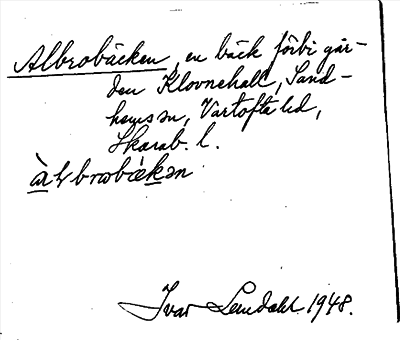 Albrobäcken, en bäck förbi går-
den Klovnehall, Sand-
hems sn, Vartofta hd,
Skarab. l.
Ivar Lundahl 1948.